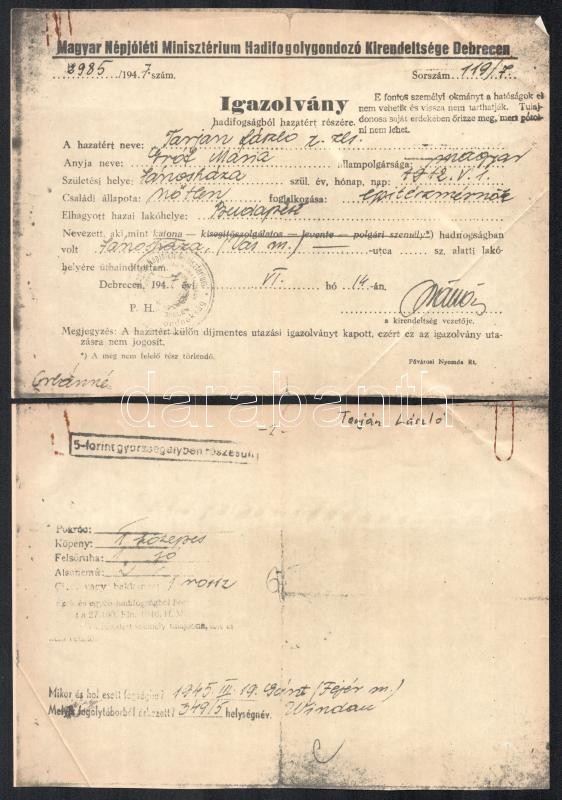 Magyar Népjóléti Minisztérium Hadifogolygondozó Kirendeltsége Debrecen
8985/1947. szám. Sorszám. 119/7.
Igazolvány
hadifogságból hazatért részére.
E fontos személyi okmányt a hatóságok el
nem vehetik és vissza nem tarthatják. Tulaj-
donosa saját érdekében őrizze meg, mert pótol-
ni nem lehet.
A hazatért neve: Tarján László
Anyja neve: Gróf Mária állampolgársága: magyar
Születési helye: Jánosháza szül. év, hónap, nap: 1912. V. 1.
Családi állapota: nőtlen foglalkozása: építészmérnök
Elhagyott hazai lakóhelye: Budapest
Nevezett, aki mint katona — kisegítőszolgálatos — levente — polgári személy*) hadifogságban
volt Jánosháza, (Vas m.) — utca sz. alatti lakó-
helyére útbaindítottam.
Debrecen, 1947 évi VI. hó 14-án.
P. H.
a kirendeltség vezetője.
Megjegyzés: A hazatért külön díjmentes utazási igazolványt kapott, ezért ez az igazolvány uta-
zásra nem jogosít.
*) A meg nem felelő rész törlendő.
Fővárosi Nyomda Rt.
Orbánné
darabanth
- 2 - Tarján László
5-forint gyorssegélyben részesült
Pokróc:
Köpeny: 1 közepes
Felsőruha: 1 jó
Alsónemű: 2
1 rossz
Mikor és hol esett fogságba? 1945 III. 19. Gánt (Fejér m.)
Melyik fogolytáborból érkezett? 349/5 helységnév. Windau